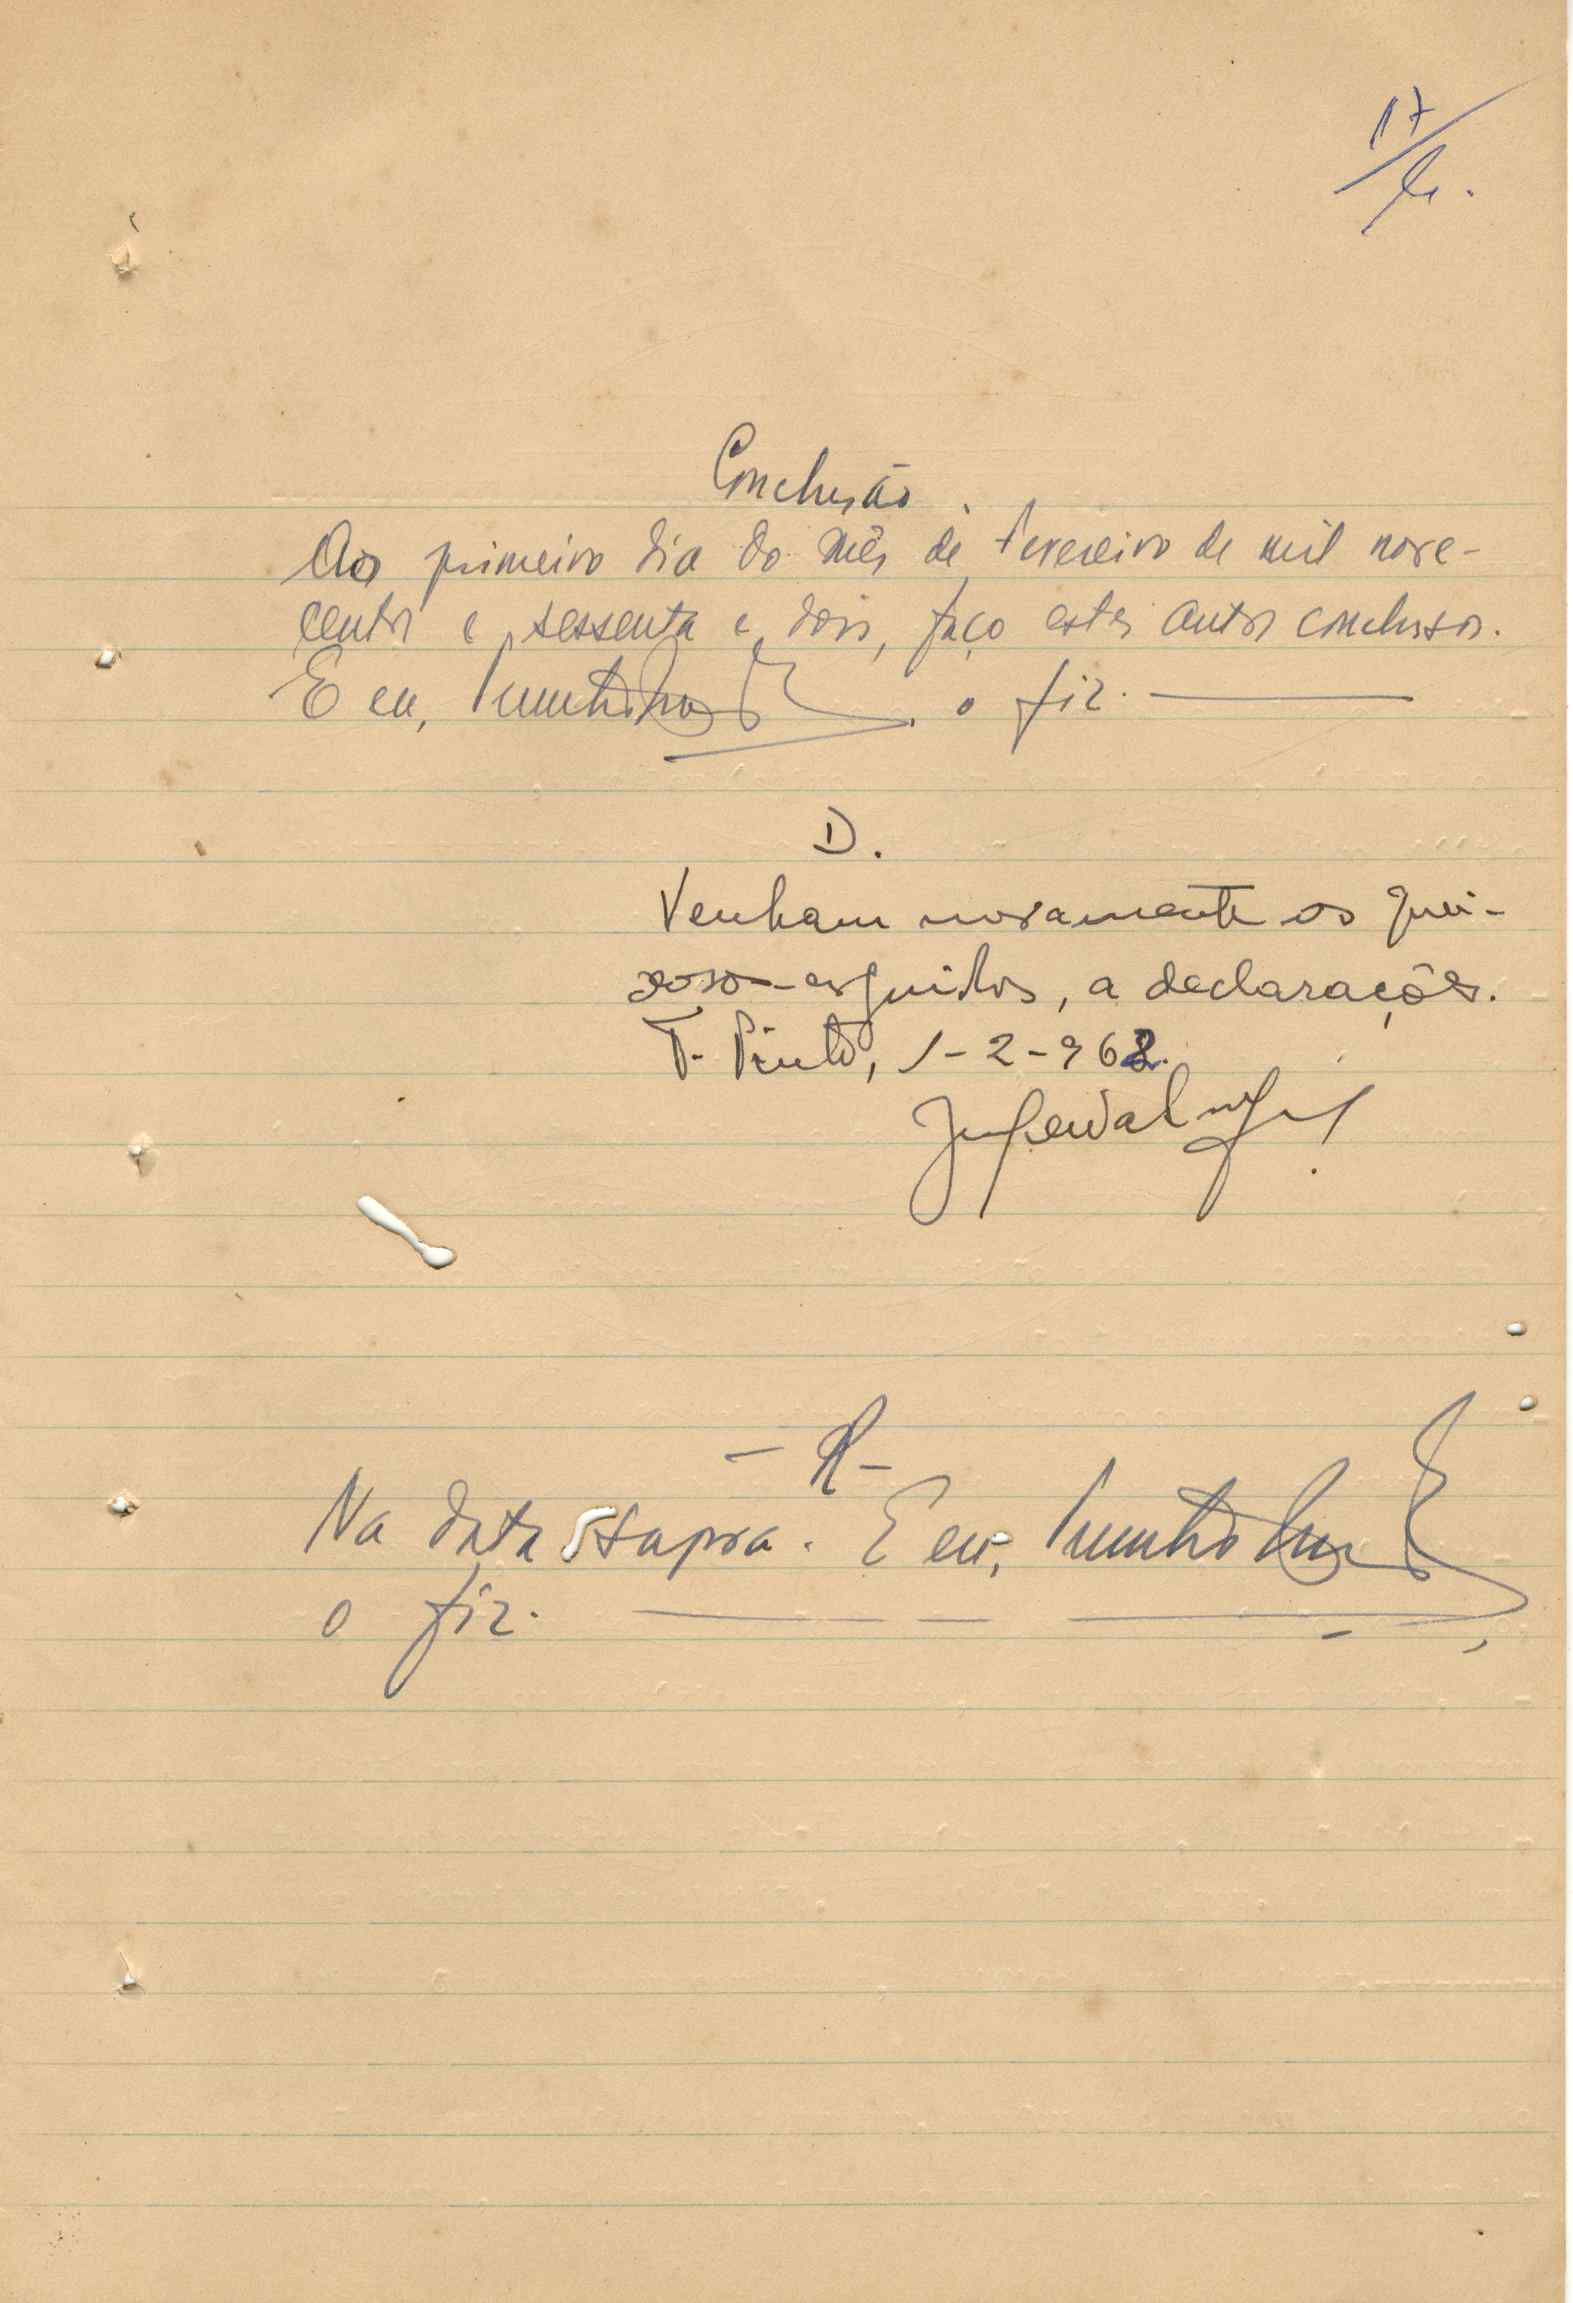 17
Conclusão
Aos primeiro dia do mês de Fevereiro de mil nove-
centos e sessenta e dois, faço estes autos conclusos.
E eu, o fiz.
D.
Venham novamente os quei-
xosos-arguidos, a declarações.
T. Pinto, 1-2-962.
- R -
Na data supra. E eu,
o fiz.